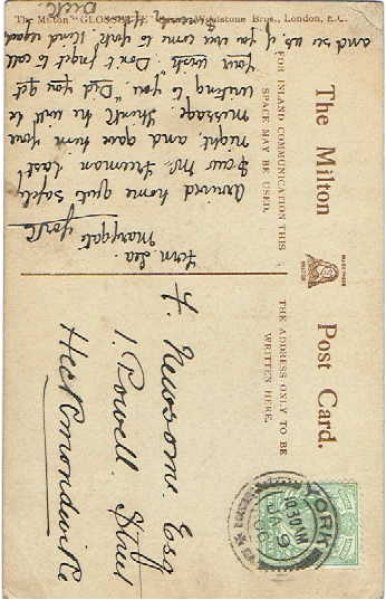 The Milton Post Card.
FOR INLAND COMMUNICATION THIS
SPACE MAY BE USED.
THE ADDRESS ONLY TO BE
WRITTEN HERE.
Fern Lea.
Marygate
York
Arrived home quite safely
I saw Mr. Freeman last
night, and gave him your
message. I think he will be
writing to you. Did you get
your wish. Don't forget to call
and see us, if you ever come to York. Kind regards
Dick
The Milton Bros., London, E.C.
F. Newsome. Esq
1. Powell. Street
Heckmondwike
YORK
10 30 AM
JA 9
06